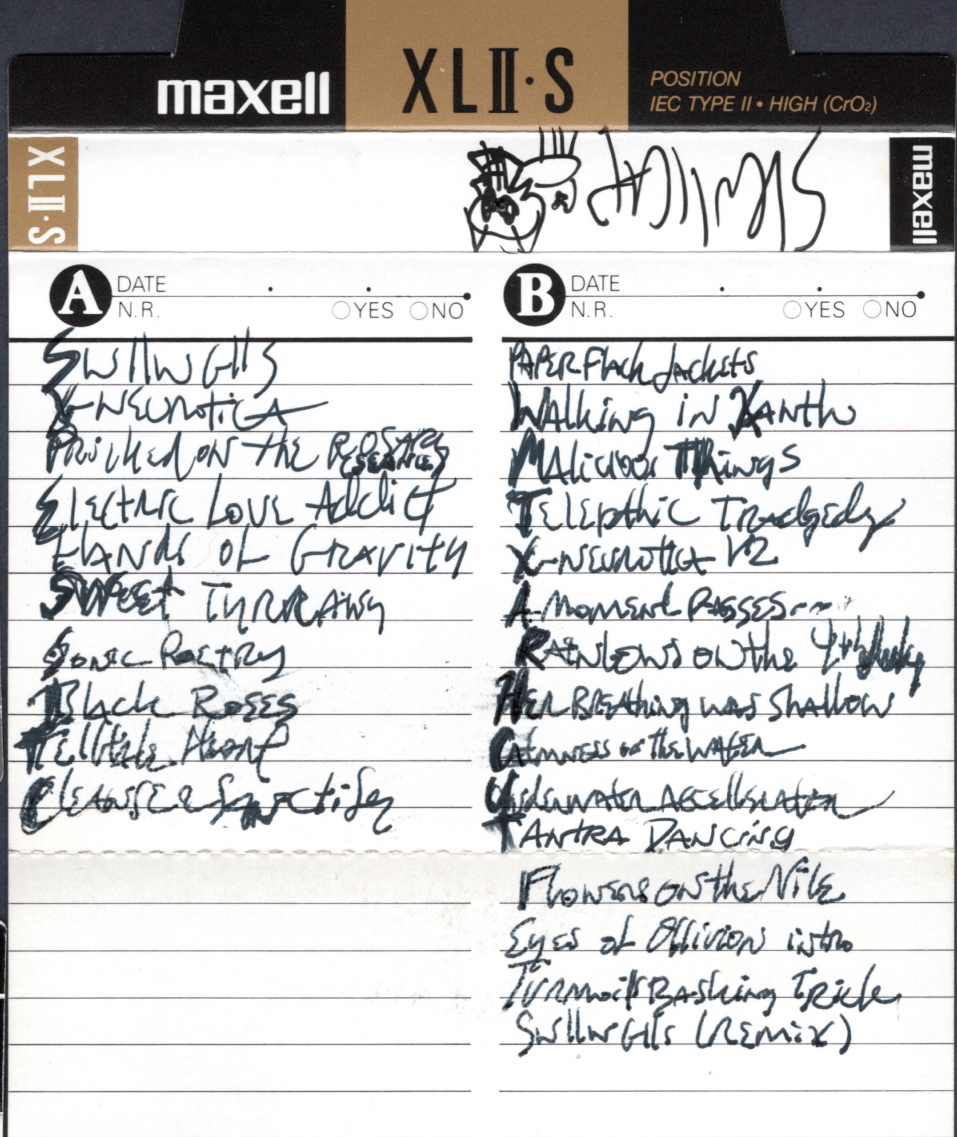 maxell
XLII·S
POSITION
IEC TYPE II • HIGH (CrO₂)
XLII·S
maxell
A DATE
N.R. YES NO
SwllwGlls
X-Neurotica
Pricked on the
Electric Love Addict
Hands of Gravity
Sweet
Sonic Poetry
Black Roses
Telltale Heart
Cleanse & Sanctify
B DATE
N.R. YES NO
PAPER Flack Jackets
Walking in Xanth
Malicious Things
Telepthic Tradgedy
X-Neurotica V2
A Moment Passes...
Rainbows on the 4th
Her Breathing was Shallow
on the Water
Underwater
Tantra Dancing
Flowers on the Nile
Eyes of Ollivion intro
Turmoil's Bashing Trick
SwllwGlls (Remix)